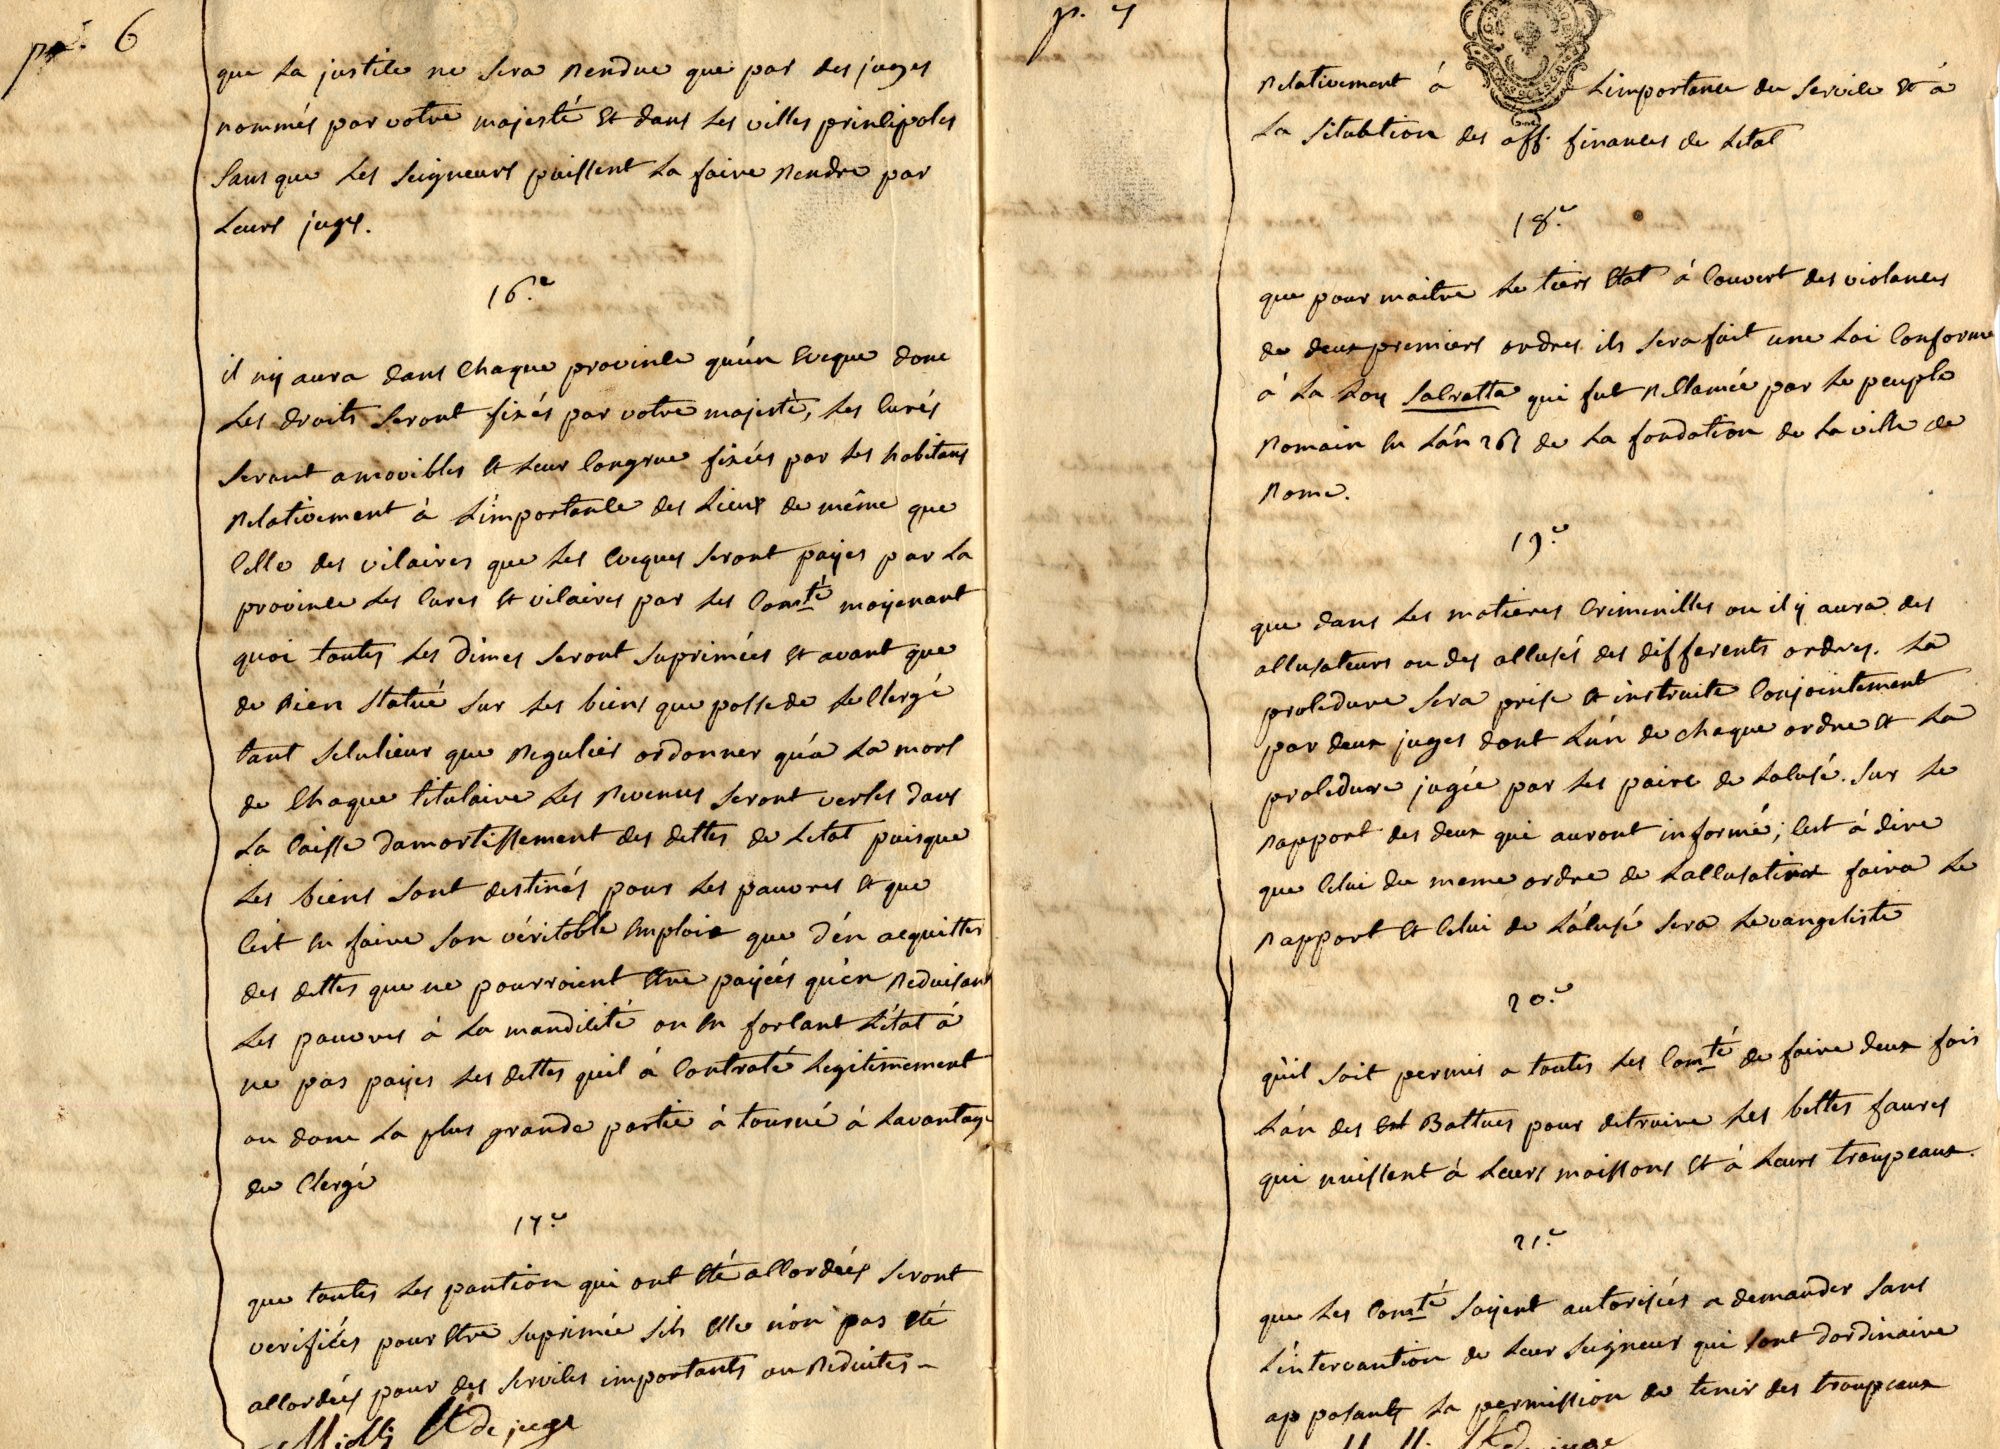 p. 6
que la justice ne sera rendue que par des juges
nommés par votre majesté et dans les villes principales
sans que les seigneurs puissent la faire rendre par
leurs juges.
16.e
il n'y aura dans chaque province qu'ún eveque donc
les droits seront fixés par votre majesté, les curés
seront amovibles et leur congrue fixées par les habitans
relativement à l'importance des lieux de même que
celle des vicaires que les eveques seront payes par la
province les cures et vicaires par les comté moyenant
quoi toutes les dimes seront suprimées et avant que
de rien statué sur les biens que possede le clergé
tant seculieur que regulier ordonner qu'a la mort
de chaque titulaire les revenus seront verses dans
la caisse damortissement des dettes de letat puisque
les biens sont destinés pour les pauvres et que
cest en faire son véritable emploie que d'én acquitter
des dettes que ne pourroient etre payées qu'en reduisant
les pauvres à la mandicité ou en forcant l'état à
ne pas payer les dettes quil à contraté legitimement
ou donc la plus grande partie à tourné à lavantage
du clergé
17.e
que toutes les pantion qui ont eté accordées seront
verifiées pour etre suprimée sils elle n'ón pas eté
accordées pour des services importants ou reduites
de juge
p. 7
relativement à limportance du service et à
la situation des aff. finances de letat
18.e
que pour maitre le tiers etat à couvert des violances
de deux premiers ordres ils sera fait une loi conforme
à la loy salratta qui fut reclamée par le peuple
romain en lán 261 de la fondation de la ville de
rome.
19.e
que dans les matieres criminilles ou il y aura des
accusateurs ou des accusés des differents ordres. la
procedure sera prise et instruite conjointement
par deux juges dont l'ún de chaque ordre et la
procedure jugée par les pairs de lacusé. sur le
rapport des deux qui auront informé; cest à dire
que celui du meme ordre de laccusateur faira le
rapport et celui de l'ácusé sera levangeliste
20.e
qu'il soit permis a toutes les comté de faire deux fois
lán des Battues pour detruire les bettes fauves
qui nuissent à leurs moissons et à leurs troupeaux.
21.e
que les comté soyent autorisées a demander sans
l'intervantion de leur seigneur qui sont dordinaire
apposants la permission de tenir des troupeaux